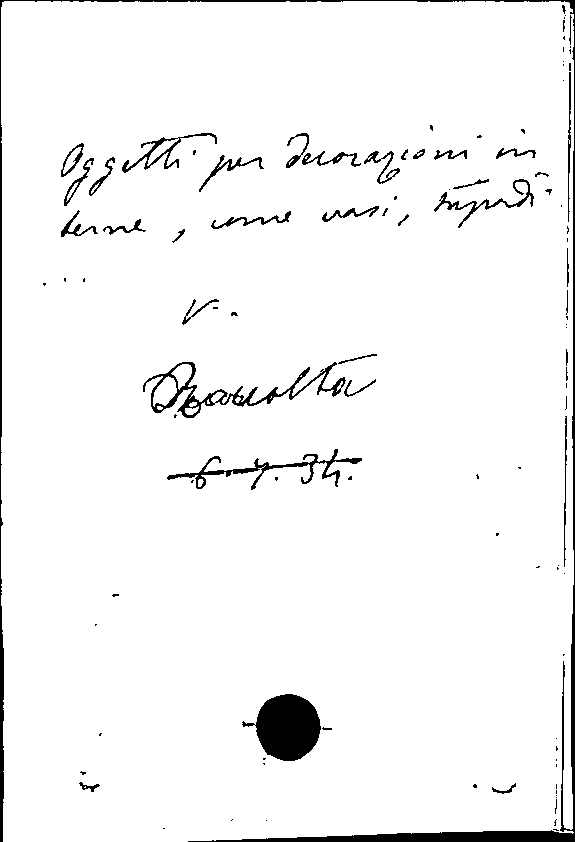 Oggetti per decorazioni in
terne, come vasi, stipendi
...
V.
Raccolta
6.7.34.